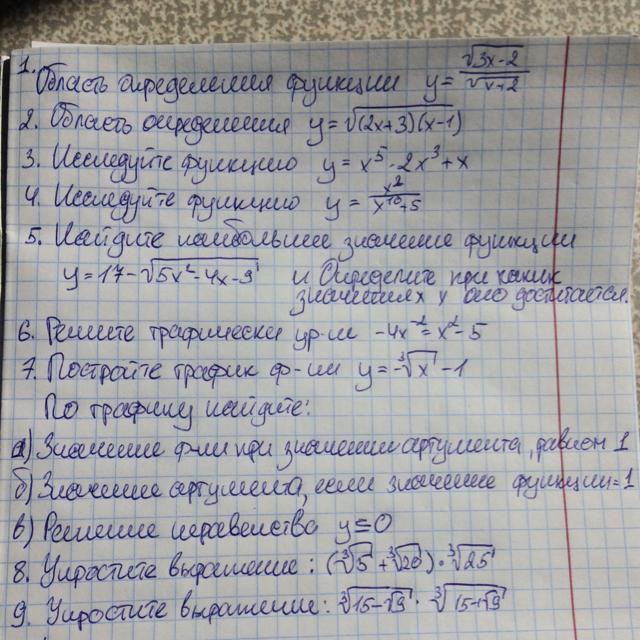 1. Область определения функции y = √(3x-2)/√(x+2)
2. Область определения y = √((2x+3)(x-1))
3. Исследуйте функцию y = x⁵ - 2x³ + x
4. Исследуйте функцию y = x²/(x¹⁰+5)
5. Найдите наибольшее значение функции
y = 17 - √(5x² - 4x - 9) и Определите при каких
значениях x оно достигается.
6. Решите графически ур-ии -4x⁻² = x² - 5
7. Постройте график ф-ии y = -³√x - 1
По графику найдите:
а) Значение ф-ии при значении аргумента, равном 1
б) Значение аргумента, если значение функции = 1
в) Решение неравенства y ≤ 0
8. Упростите выражение: (-³√5 + ³√20) · ³√25
9. Упростите выражение: ³√(15-√9) · ³√(15-√9)